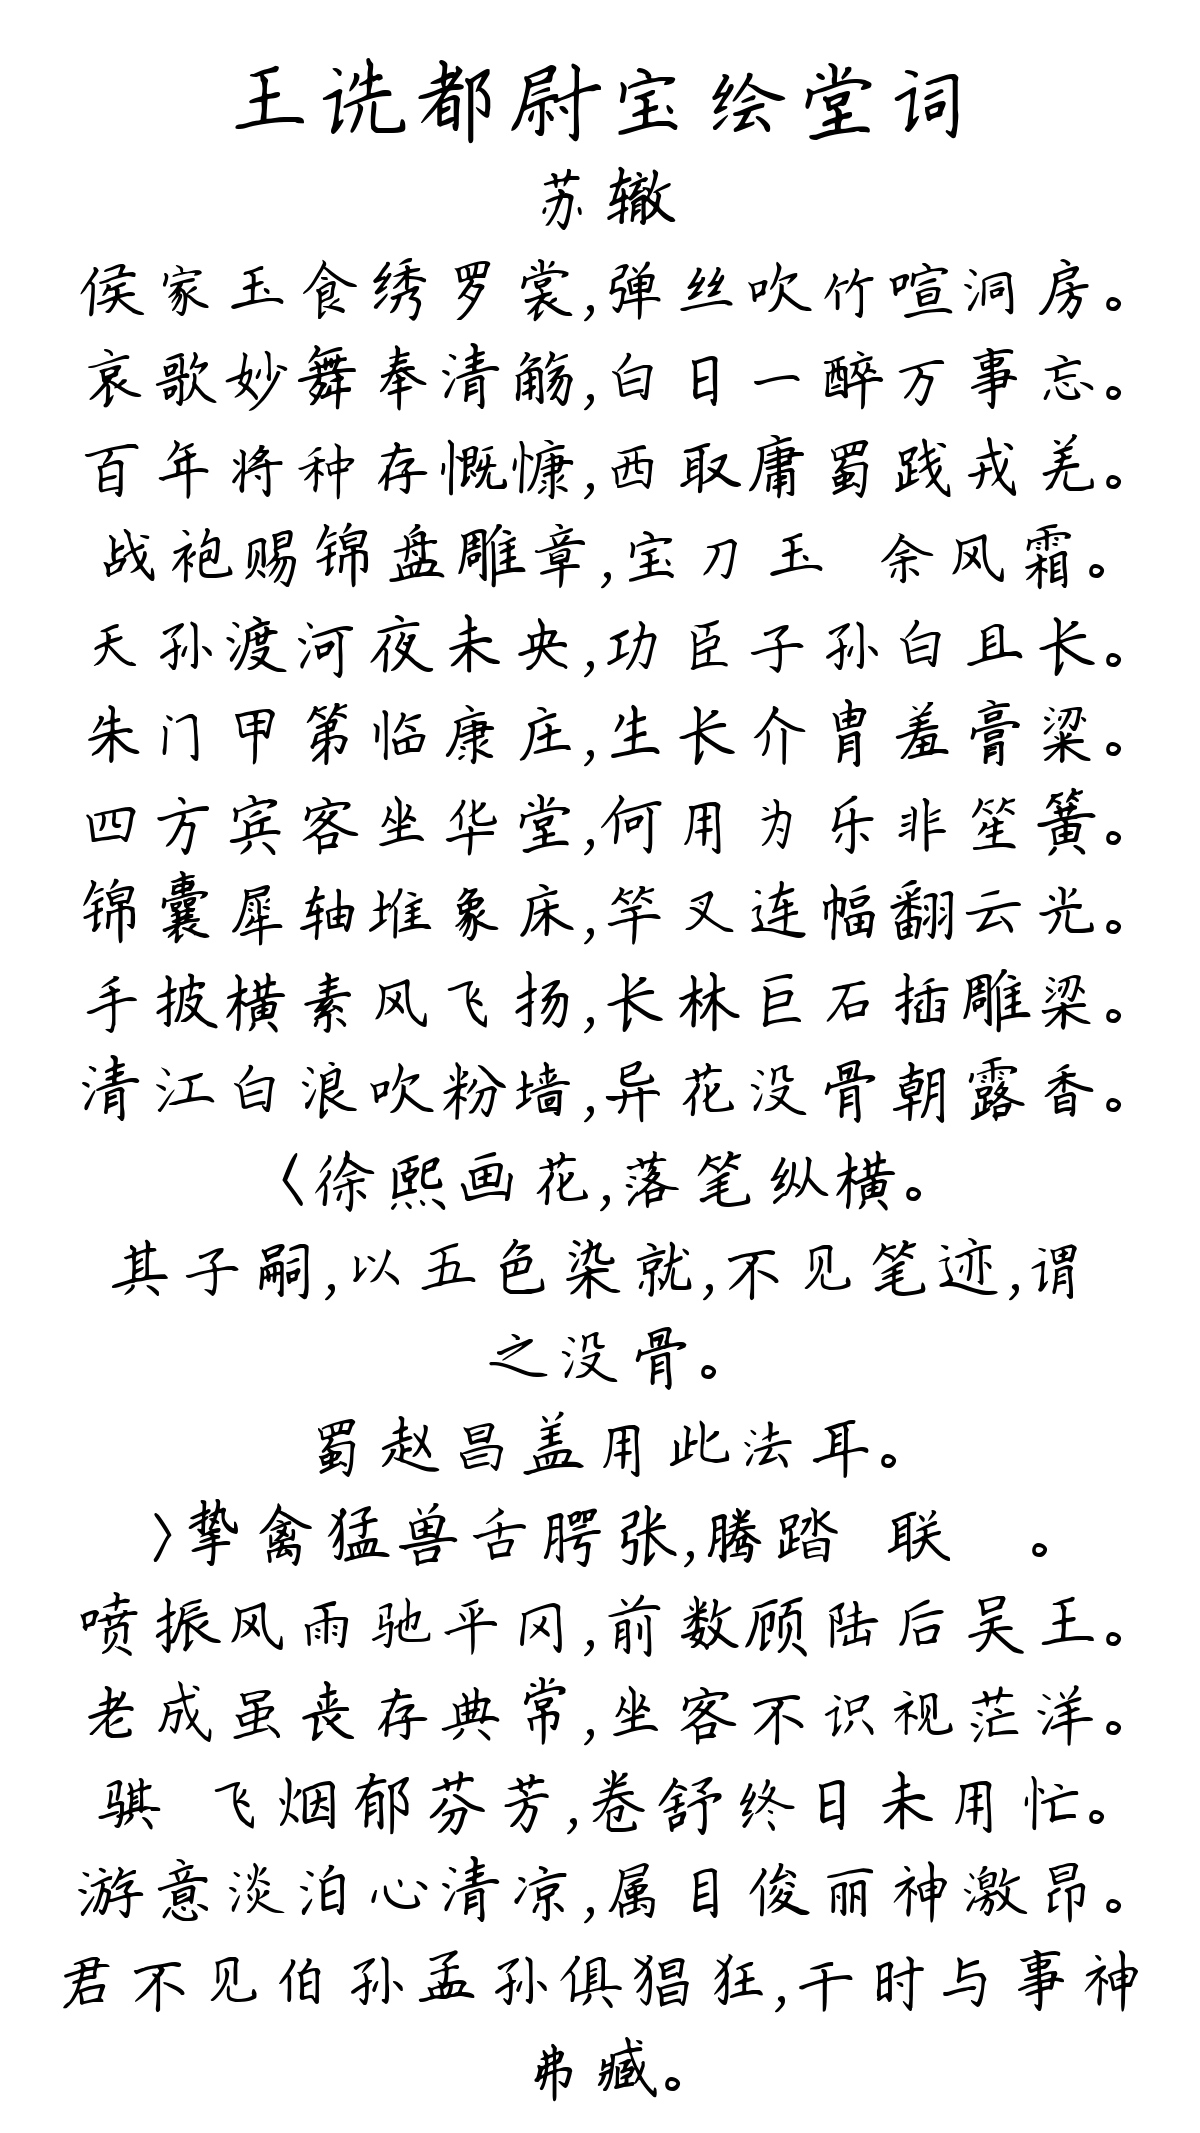 王诜都尉宝绘堂词
苏辙
侯家玉食绣罗裳,弹丝吹竹喧洞房。
哀歌妙舞奉清觞,白日一醉万事忘。
百年将种存慨慷,西取庸蜀践戎羌。
战袍赐锦盘雕章,宝刀玉 余风霜。
天孙渡河夜未央,功臣子孙白且长。
朱门甲第临康庄,生长介胄羞膏粱。
四方宾客坐华堂,何用为乐非笙簧。
锦囊犀轴堆象床,竿叉连幅翻云光。
手披横素风飞扬,长林巨石插雕梁。
清江白浪吹粉墙,异花没骨朝露香。
〈徐熙画花,落笔纵横。
其子嗣,以五色染就,不见笔迹,谓
之没骨。
蜀赵昌盖用此法耳。
〉挚禽猛兽舌腭张,腾踏 联 。
喷振风雨驰平冈,前数顾陆后吴王。
老成虽丧存典常,坐客不识视茫洋。
骐 飞烟郁芬芳,卷舒终日未用忙。
游意淡泊心清凉,属目俊丽神激昂。
君不见伯孙孟孙俱猖狂,干时与事神
弗臧。